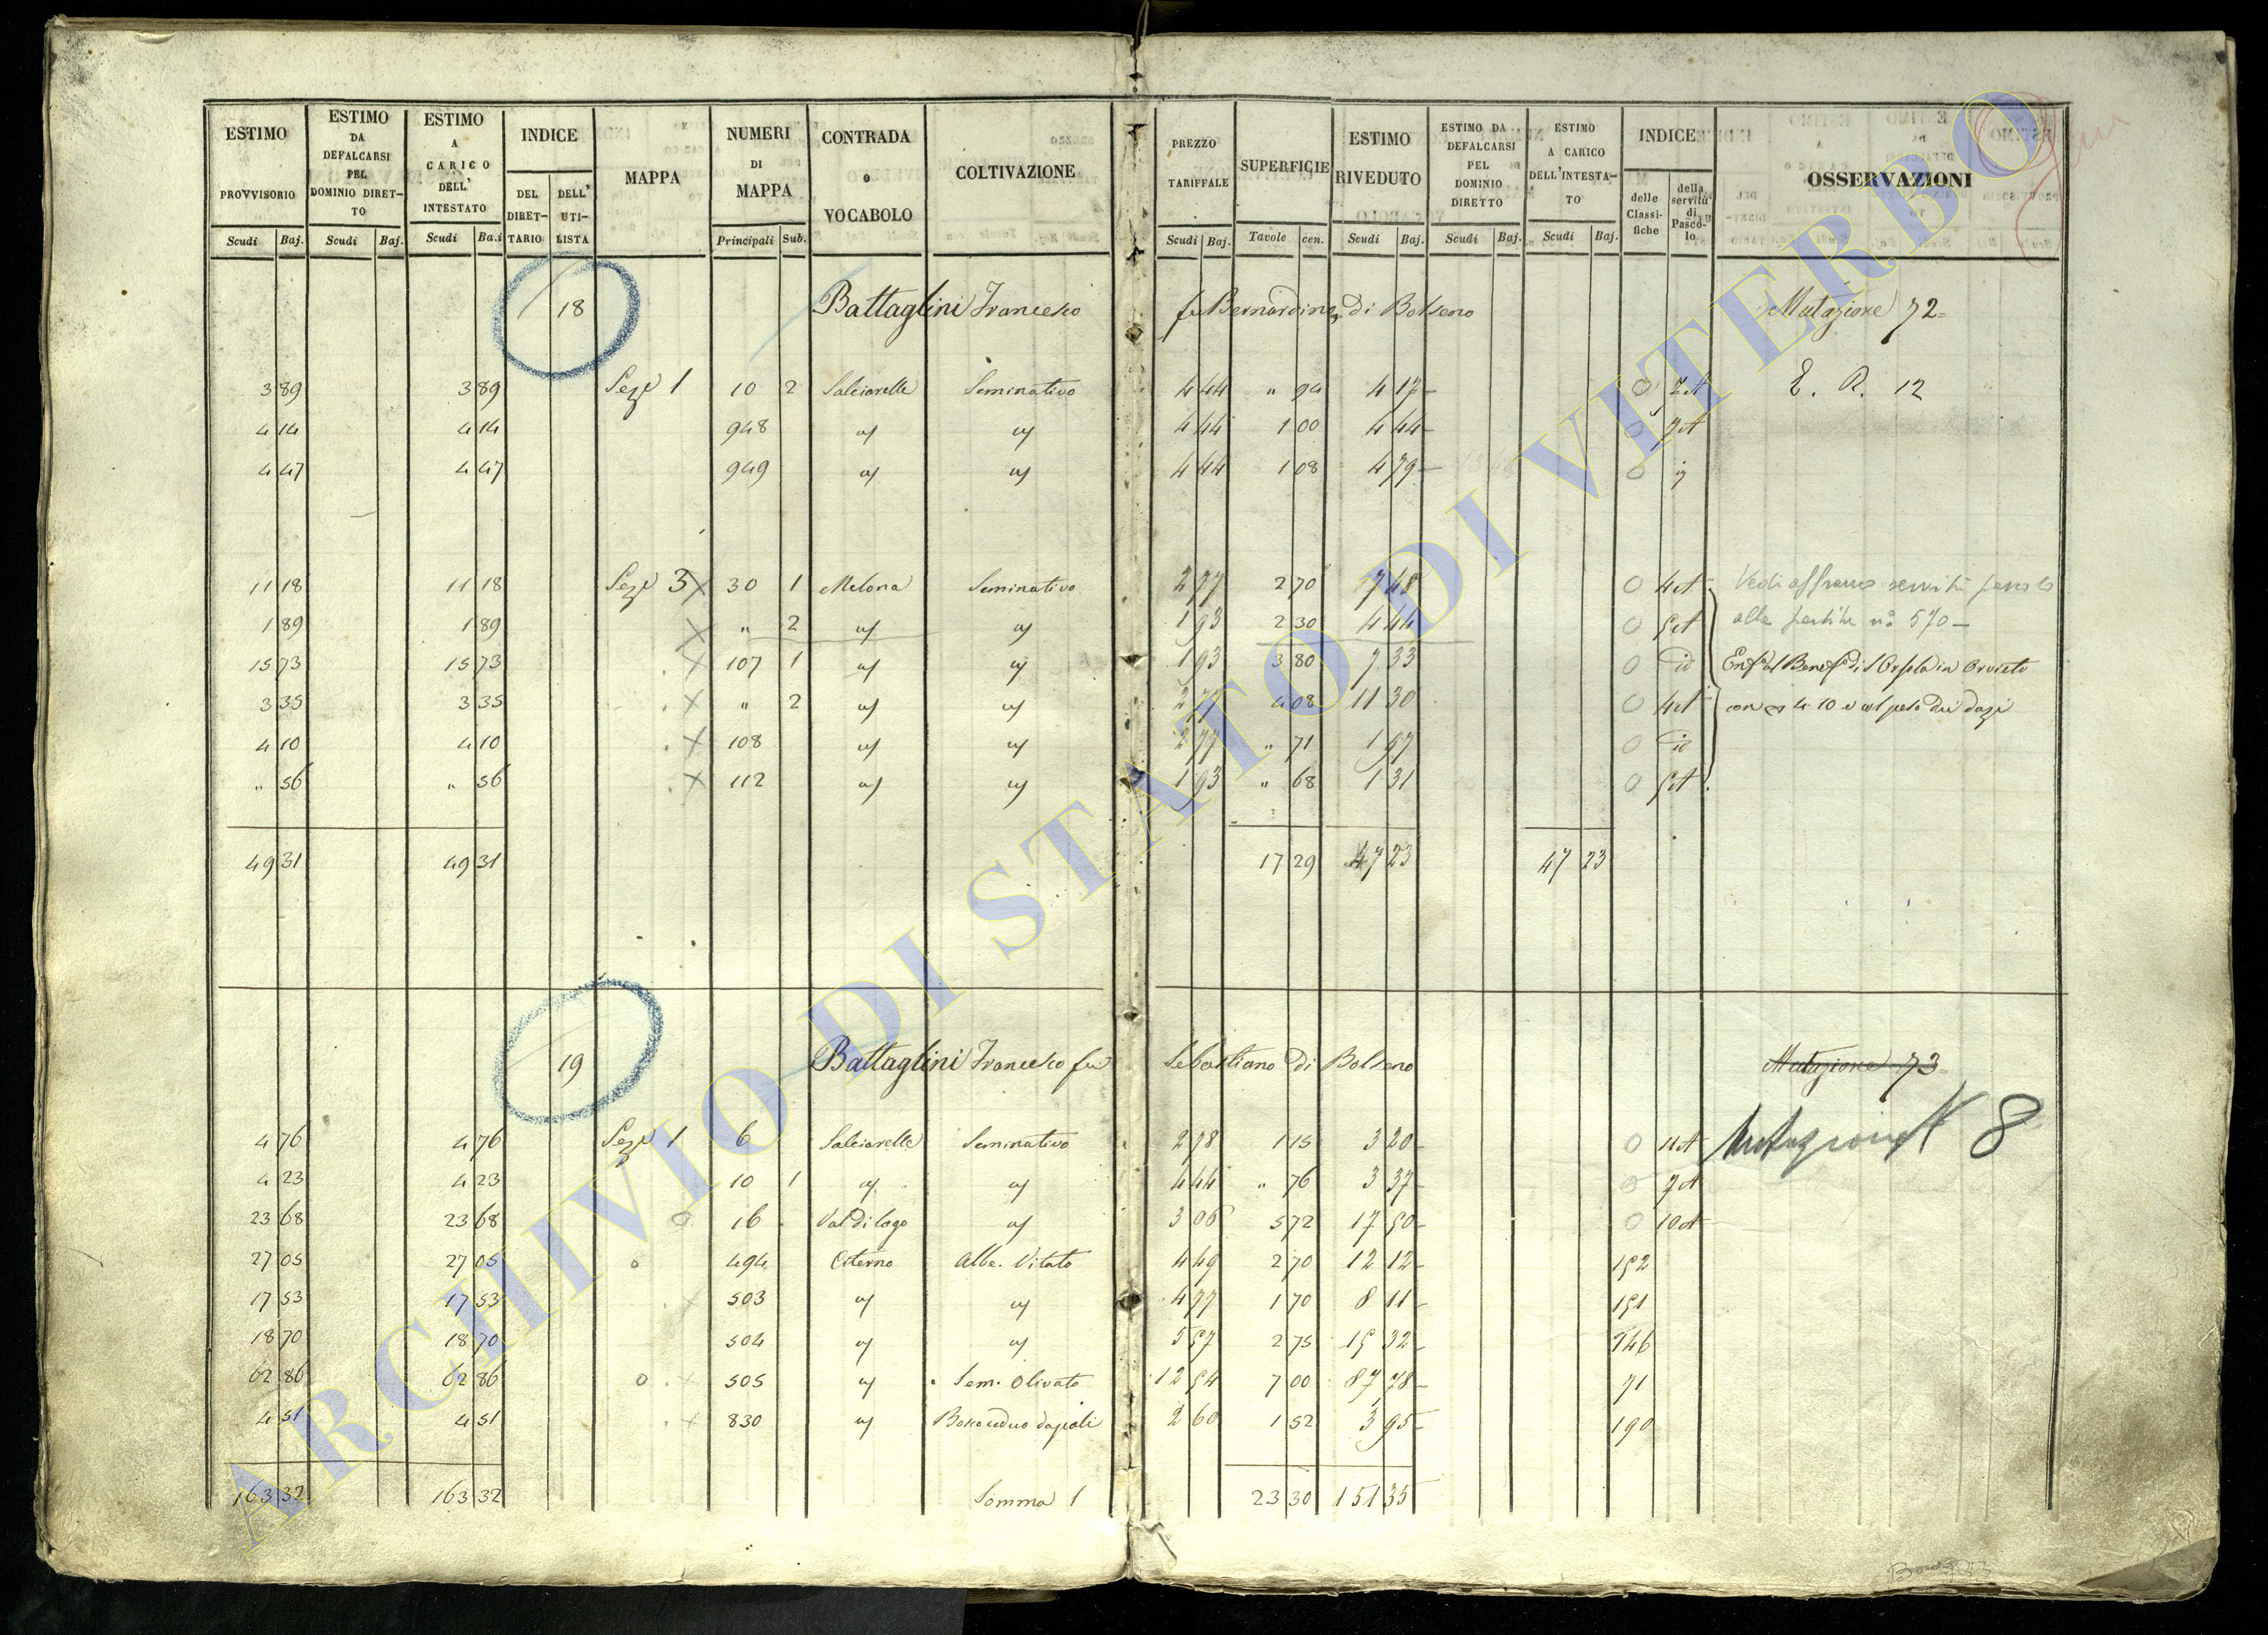 ESTIMO PROVVISORIO Scudi Baj.
ESTIMO DA DEFALCARSI PEL DOMINIO DIRETTO Scudi Baj.
ESTIMO A CARICO DELL' INTESTATO Scudi Ba.i
INDICE DEL DIRETTARIO DELL' UTILISTA
MAPPA
NUMERI DI MAPPA Principali Sub.
CONTRADA o VOCABOLO
COLTIVAZIONE
PREZZO TARIFFALE Scudi Baj.
SUPERFICIE Tavole cen.
ESTIMO RIVEDUTO Scudi Baj.
ESTIMO DA DEFALCARSI PEL DOMINIO DIRETTO Scudi Baj.
ESTIMO A CARICO DELL'INTESTATO Scudi Baj.
INDICE delle Classifiche della servitù di Pascolo
OSSERVAZIONI
18 Battaglini Francesco fu Bernardino, di Bolseno Mutazione 72=
3 89 3 89 Sez.e 1 10 2 Salciarelle Seminativo 4 44 " 94 4 17 0 7 A E. R. 12
4 14 4 14 948 " " 4 44 1 00 4 44 0 7 A
4 47 4 47 949 " " 4 44 1 08 4 79 0
11 18 11 18 Sez.e 3 x 30 1 Melona Seminativo 2 77 2 70 7 48 0 4 A Vedi
1 89 1 89 x " 2 " " 1 93 2 30 4 44 0 5 A alla partita n.o 570
15 73 15 73 x 107 1 " " 1 93 3 80 7 33 0 id in Orvieto
3 35 3 35 x " 2 " " 2 77 4 08 11 30 0 4 A 4 10 dazi
4 10 4 10 x 108 " " 2 77 " 71 1 97 0 id
" 56 " 56 x 112 " " 1 93 " 68 1 31 0 5 A
49 31 49 31 17 29 47 23 47 23
19 Battaglini Francesco fu Sebastiano di Bolseno Mutazione 73
4 76 4 76 Sez.e 1 6 Salciarelle Seminativo 2 78 1 15 3 20 0 11 A Mutazione N 8
4 23 4 23 10 1 " " 4 44 " 76 3 37 0 7 A
23 68 23 68 0 16 Val di lago " 3 06 5 72 17 50 0 10 A
27 05 27 05 o 494 Citerno Albe. Vitato 4 49 2 70 12 12 152
17 53 17 53 x 503 " " 4 77 1 70 8 11 151
18 70 18 70 504 " " 5 57 2 75 15 32 146
62 86 62 86 o x 505 " Sem. Olivato 12 54 7 00 87 78 71
4 51 4 51 x 830 " Bosco ceduo da pali 2 60 1 52 3 95 190
163 32 163 32 Somma 1 23 30 151 35
ARCHIVIO DI STATO DI VITERBO